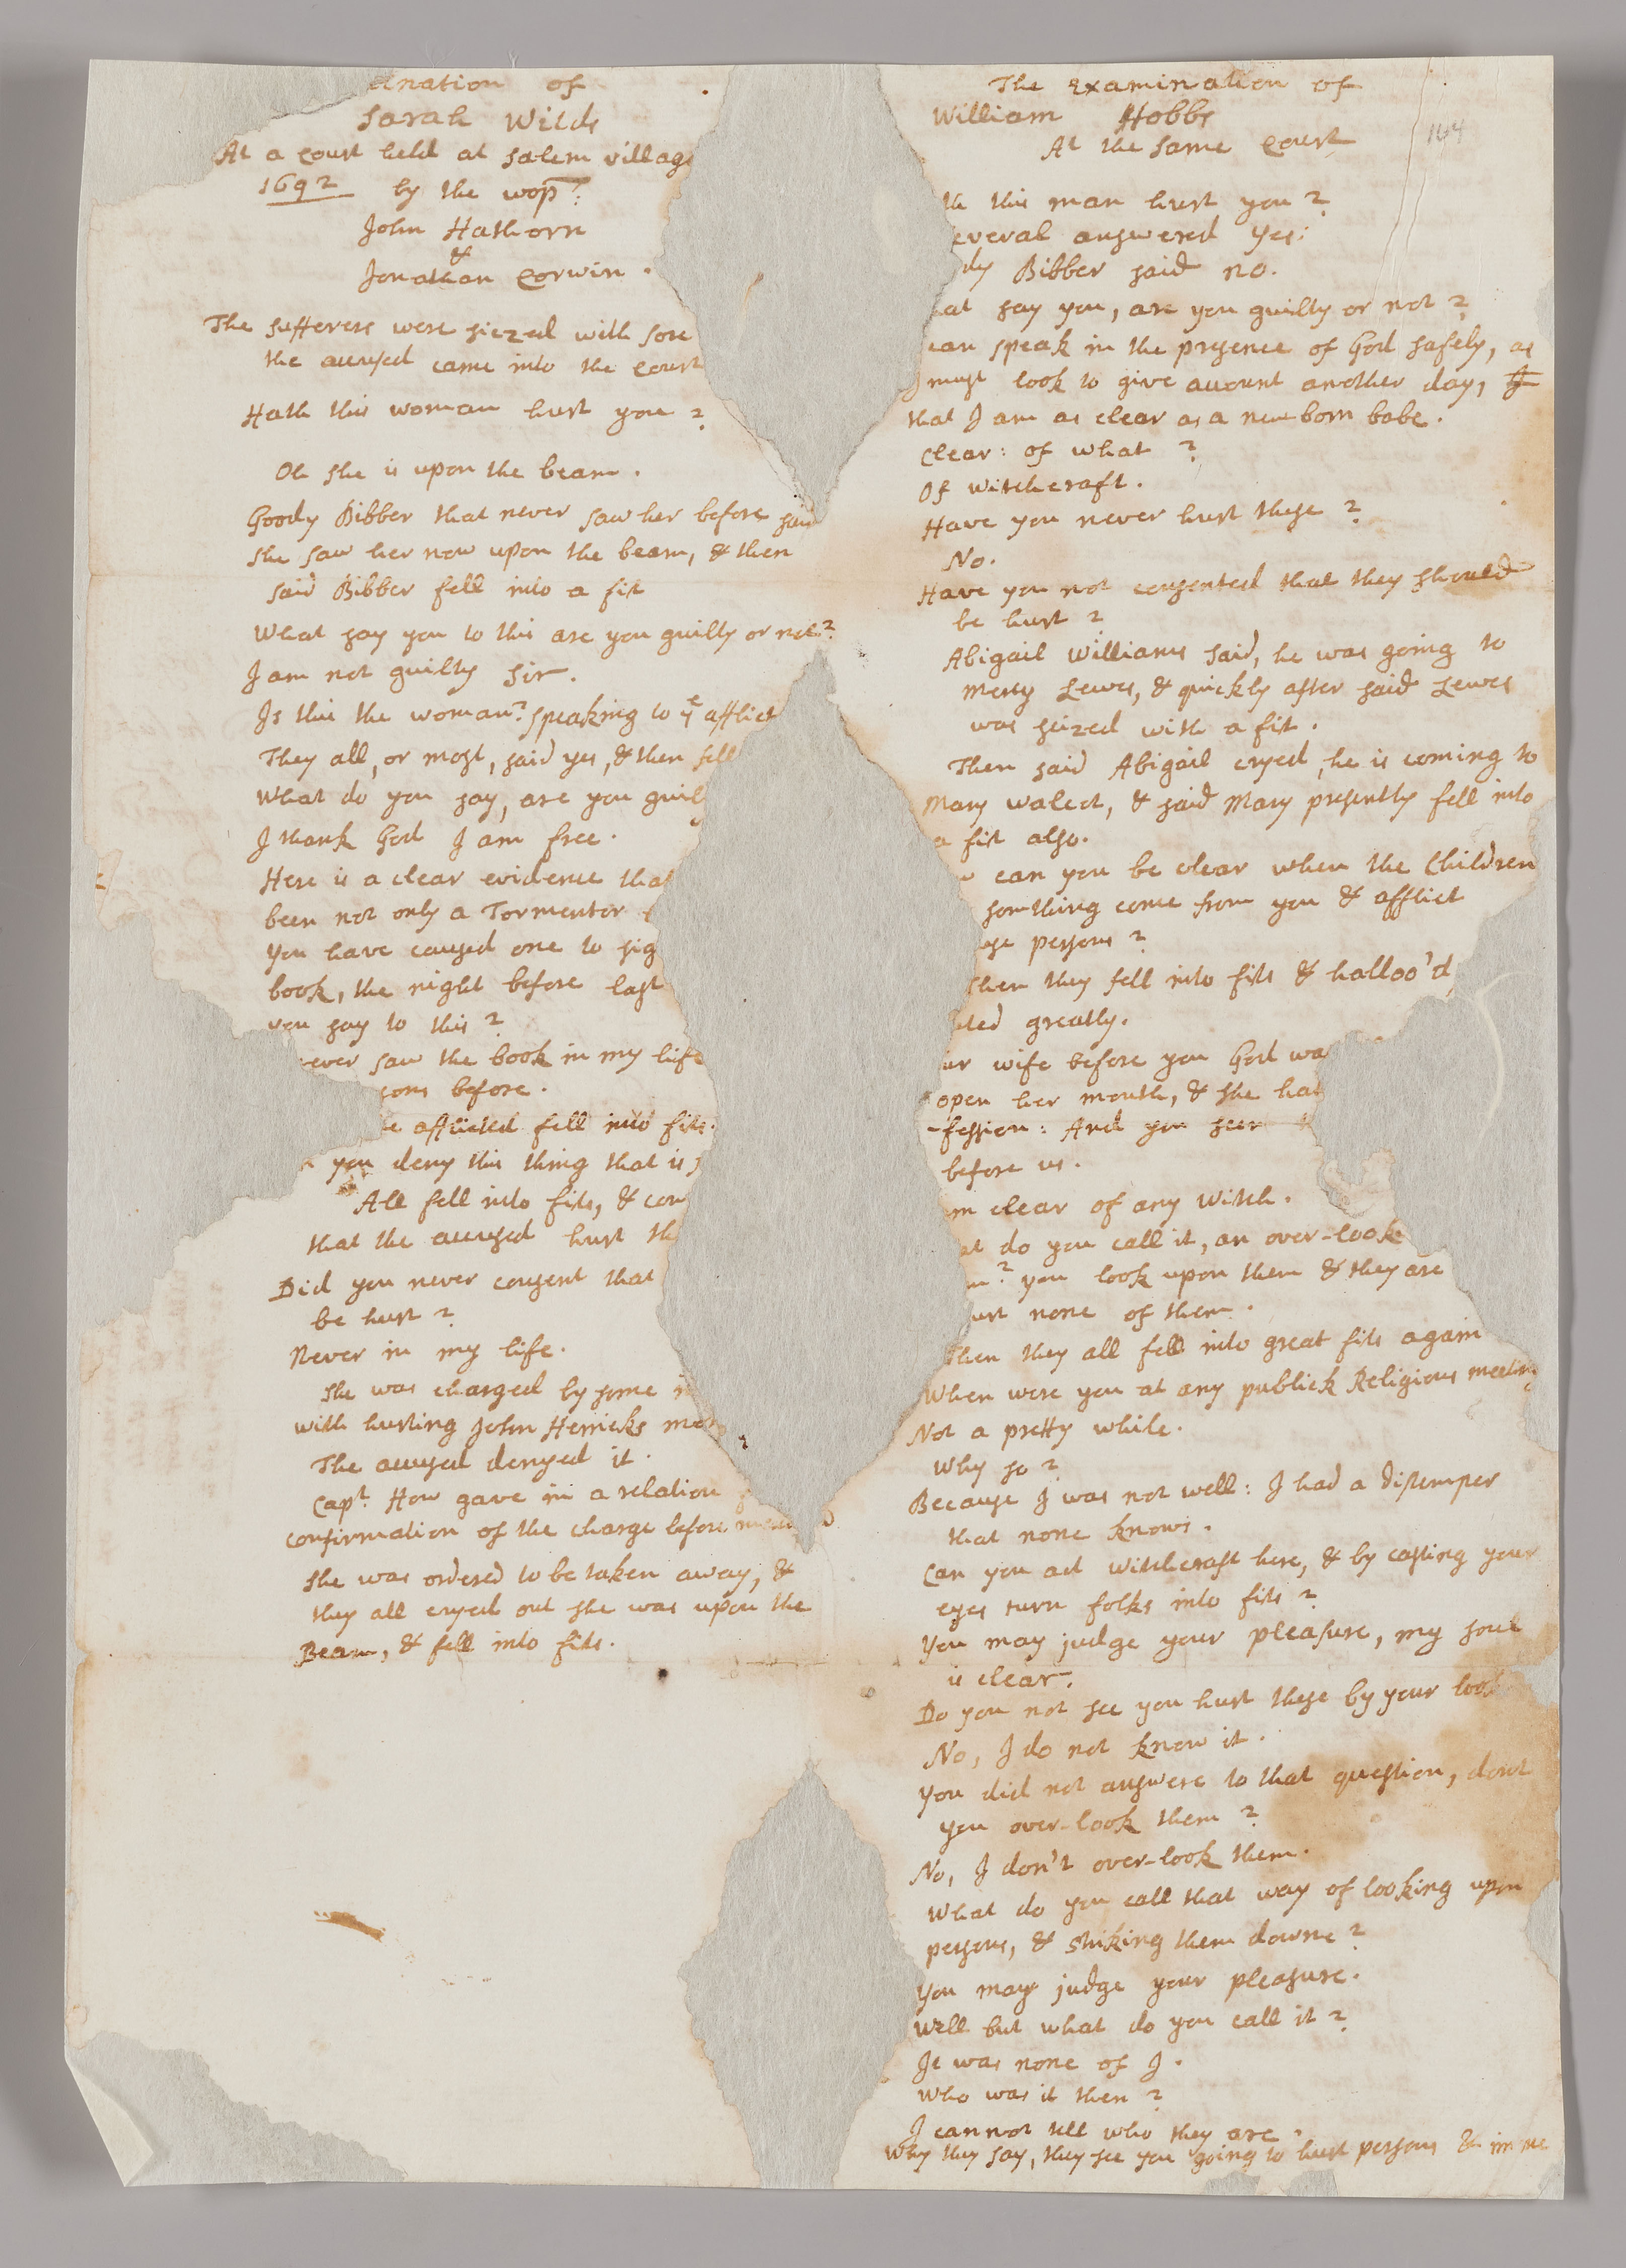 ination of
Sarah Wilds
At a Court held at Salem village
1692 by the wop:
John Hathorn
&
Jonathan Corwin.
The sufferers were siezed with sore
the accused came into the Court
Hath this woman hurt you?
Oh she is upon the beam.
Goody Bibber that never saw her before said
she saw her now upon the beam, & then
said Bibber fell into a fit
What say you to this are you guilty or not?
I am not guilty Sir.
Is this the woman? speaking to ye afflict
They all, or most, said yes, & then fell
What do you say, are you guil
I thank God I am free.
Here is a clear evidence that
been not only a Tormentor
You have caused one to sig
book, the night before last
you say to this?
never saw the book in my life
sons before.
e afflicted fell into fits.
you deny this thing that is
All fell into fits, & con
that the accused hurt th
Did you never consent that
be hurt?
Never in my life.
She was charged by some
with hurting John Herricks mo
The accused denyed it.
Capt. How gave in a relation
confirmation of the charge before
She was ordered to be taken away, &
they all cryed out she was upon the
Beam, & fell into fits.
The examination of
William Hobbs
At the same Court
144
th this man hurt you?
everal answered yes:
dy Bibber said no.
hat say you, are you guilty or not?
can speak in the presence of God safely, as
I must look to give account another day,
that I am as clear as a new born babe.
Clear: of what?
Of Witchcraft.
Have you never hurt these?
No.
Have you not consented that they should
be hurt?
Abigail Williams said, he was going to
Mercy Lewes, & quickly after said Lewes
was seized with a fit.
Then said Abigail cryed, he is coming to
Mary Walcot, & said Mary presently fell into
a fit also.
w can you be clear when the Children
somthing come from you & afflict
ese persons?
Then they fell into fits & halloo'd,
ted greatly.
ur wife before you God wa
open her mouth, & she ha
-fession: And you seem
before us.
m clear of any Witch.
at do you call it, an over-look
m? you look upon them & they are
urt none of them.
Then they all fell into great fits again
When were you at any publick Religious meeting
Not a pretty while.
Why so?
Because I was not well: I had a distemper
that none knows.
Can you act Witchcraft here, & by casting your
eyes turn folks into fits?
You may judge your pleasure, my soul
is clear.
Do you not see you hurt these by your look
No, I do not know it.
You did not answere to that question, dont
you over-look them?
No, I don't over-look them.
What do you call that way of looking upon
persons, & striking them downe?
You may judge your pleasure.
Well but what do you call it?
It was none of I.
Who was it then?
I cannot tell who they are.
Why they say, they see you going to hurt persons &